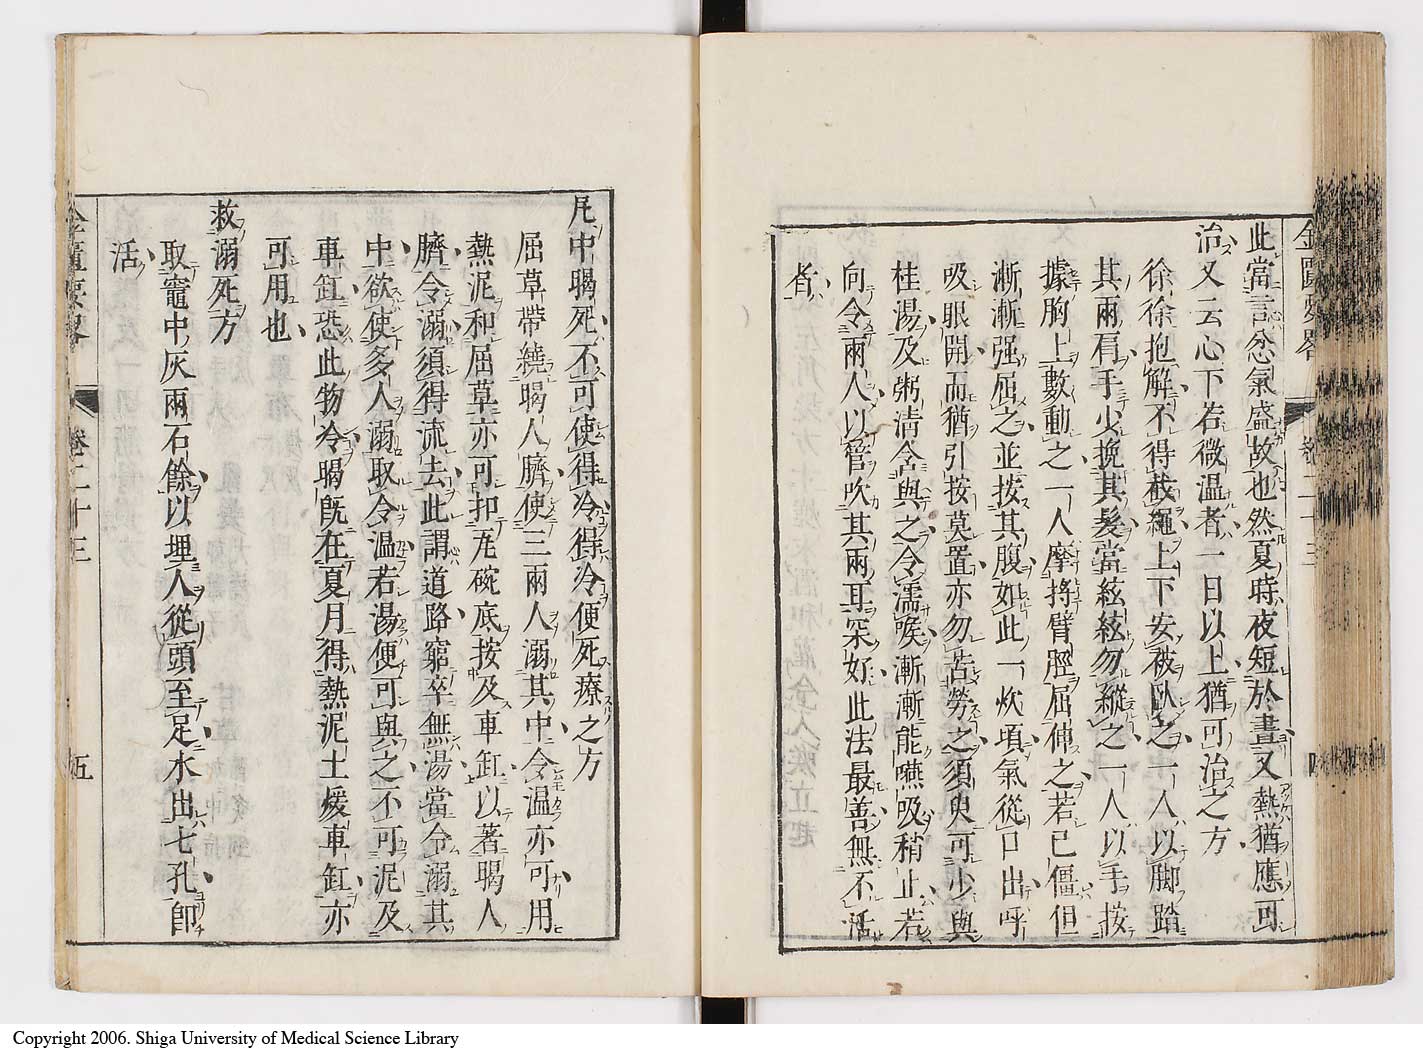 金匱要畧 卷二十三 四
此當言忿氣盛故也然夏時夜短於晝又熱猶應可
治又云心下若微温者一日以上猶可治之方
徐徐抱解不得截繩上下安被臥之一人以脚踏
其兩肩手少挽其髮當絃絃勿縱之一人以手按
據胸上數動之一人摩捋臂脛屈伸之若已僵但
漸漸强屈之並按其腹如此一炊頃氣從口出呼
吸眼開而猶引按莫置亦勿苦勞之須臾可少與
桂湯及粥清含與之令濡喉漸漸能嚥吸稍止若
向令兩人以管吹其兩耳罙好此法最善無不活
者
凡中暍死不可使得冷得冷便死療之方
屈草帶繞暍人臍使三兩人溺其中令温亦可用
熱泥和屈草亦可扣瓦碗底按及車缸以著暍人
臍令溺須得流去此謂道路窮卒無湯當令溺其
中欲使多人溺取令温若湯便可與之不可泥及
車缸恐此物冷暍既在夏月得熱泥土煖車缸亦
可用也
救溺死方
取竈中灰兩石餘以埋人從頭至足水出七孔卽
活
金匱要畧 卷二十三 五
Copyright 2006. Shiga University of Medical Science Library